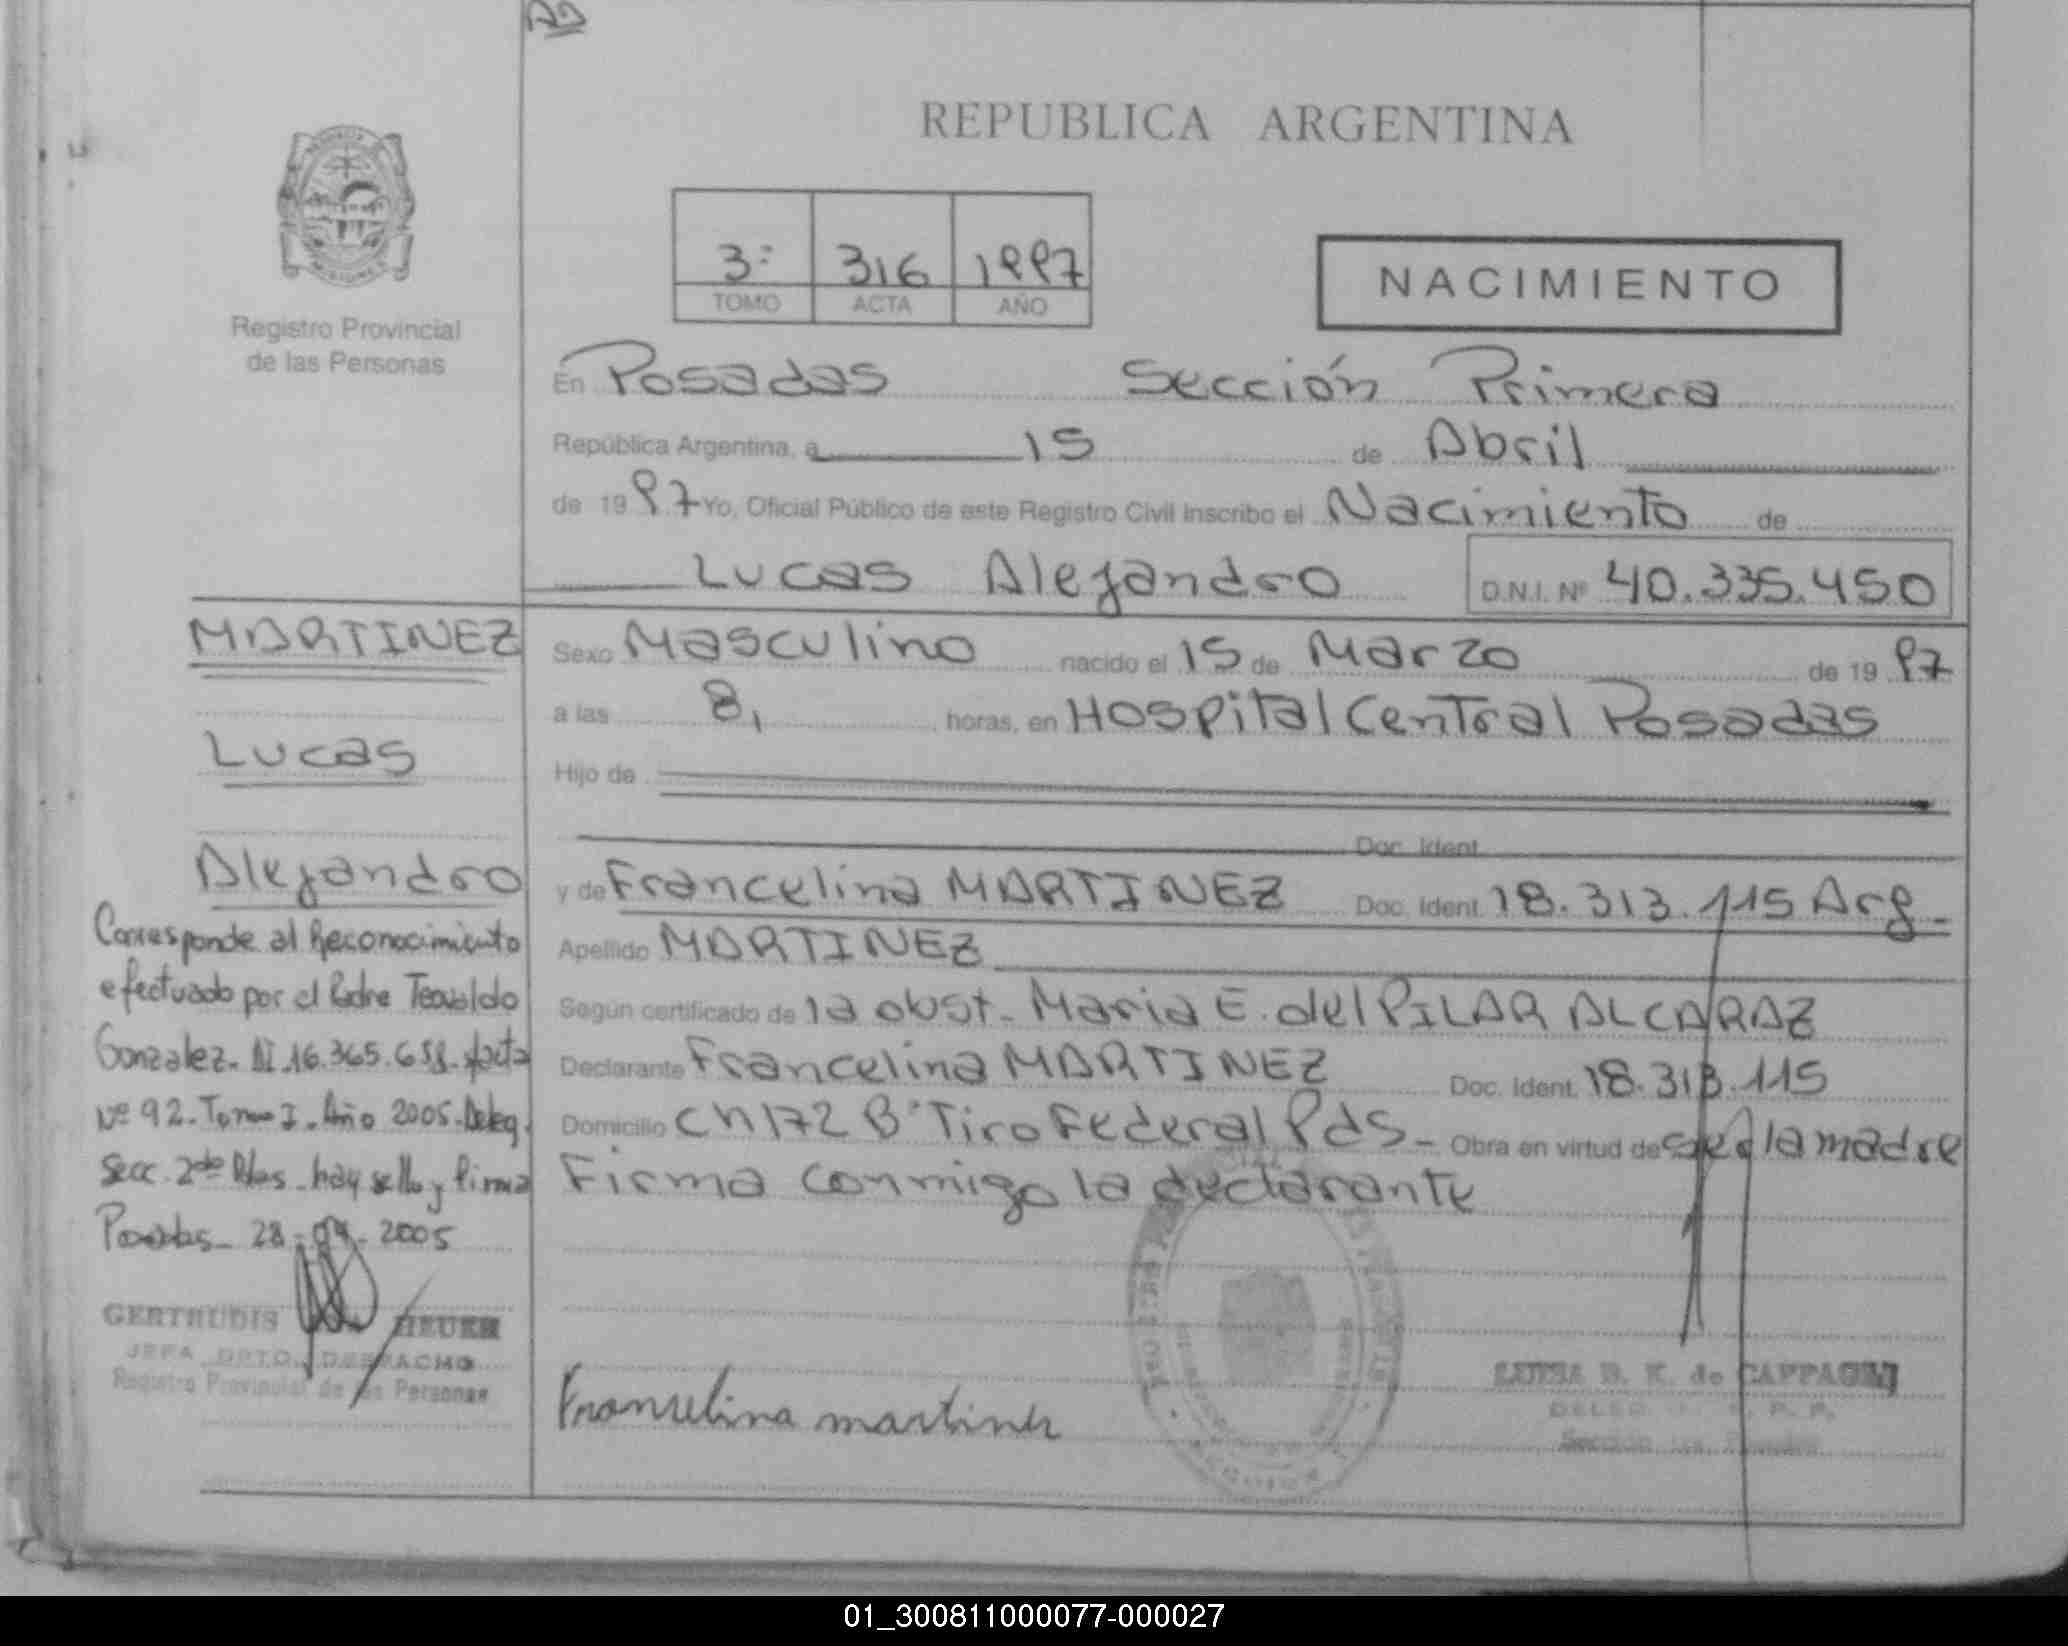 REPUBLICA ARGENTINA
3º 316 1997
TOMO ACTA AÑO
NACIMIENTO
Registro Provincial
de las Personas
En Posadas Sección Primera
República Argentina, a 15 de Abril
de 1997 Yo, Oficial Público de este Registro Civil Inscribo el Nacimiento de
Lucas Alejandro D.N.I. Nº 40.335.450
Sexo Masculino nacido el 15 de Marzo de 1997
a las 8, horas, en Hospital Central Posadas
Hijo de
Doc. Ident.
y de Francelina MARTINEZ Doc. Ident. 18.313.115 Arg-
Apellido MARTINEZ
Según certificado de la obst. Maria E. del PILAR ALCARAZ
Declarante Francelina MARTINEZ Doc. Ident. 18.313.115
Domicilio Ch 172 Bº Tiro Federal Pds- Obra en virtud de ser la madre
Firma conmigo la declarante
Francelina martinez
LUISA B. K. de
MARTINEZ
Lucas
Alejandro
Corresponde al Reconocimiento
efectuado por el Padre
Gonzalez. 16.365.658. s/acta
Nº 92. Tomo I. Año 2005. Deleg.
Secc. 2da Pdas. hay sello y firma
Posadas - 28-04-2005
GERTRUDIS HEUER
JEFA DPTO. DESPACHO
Registro Provincial de las Personas
01_300811000077-000027